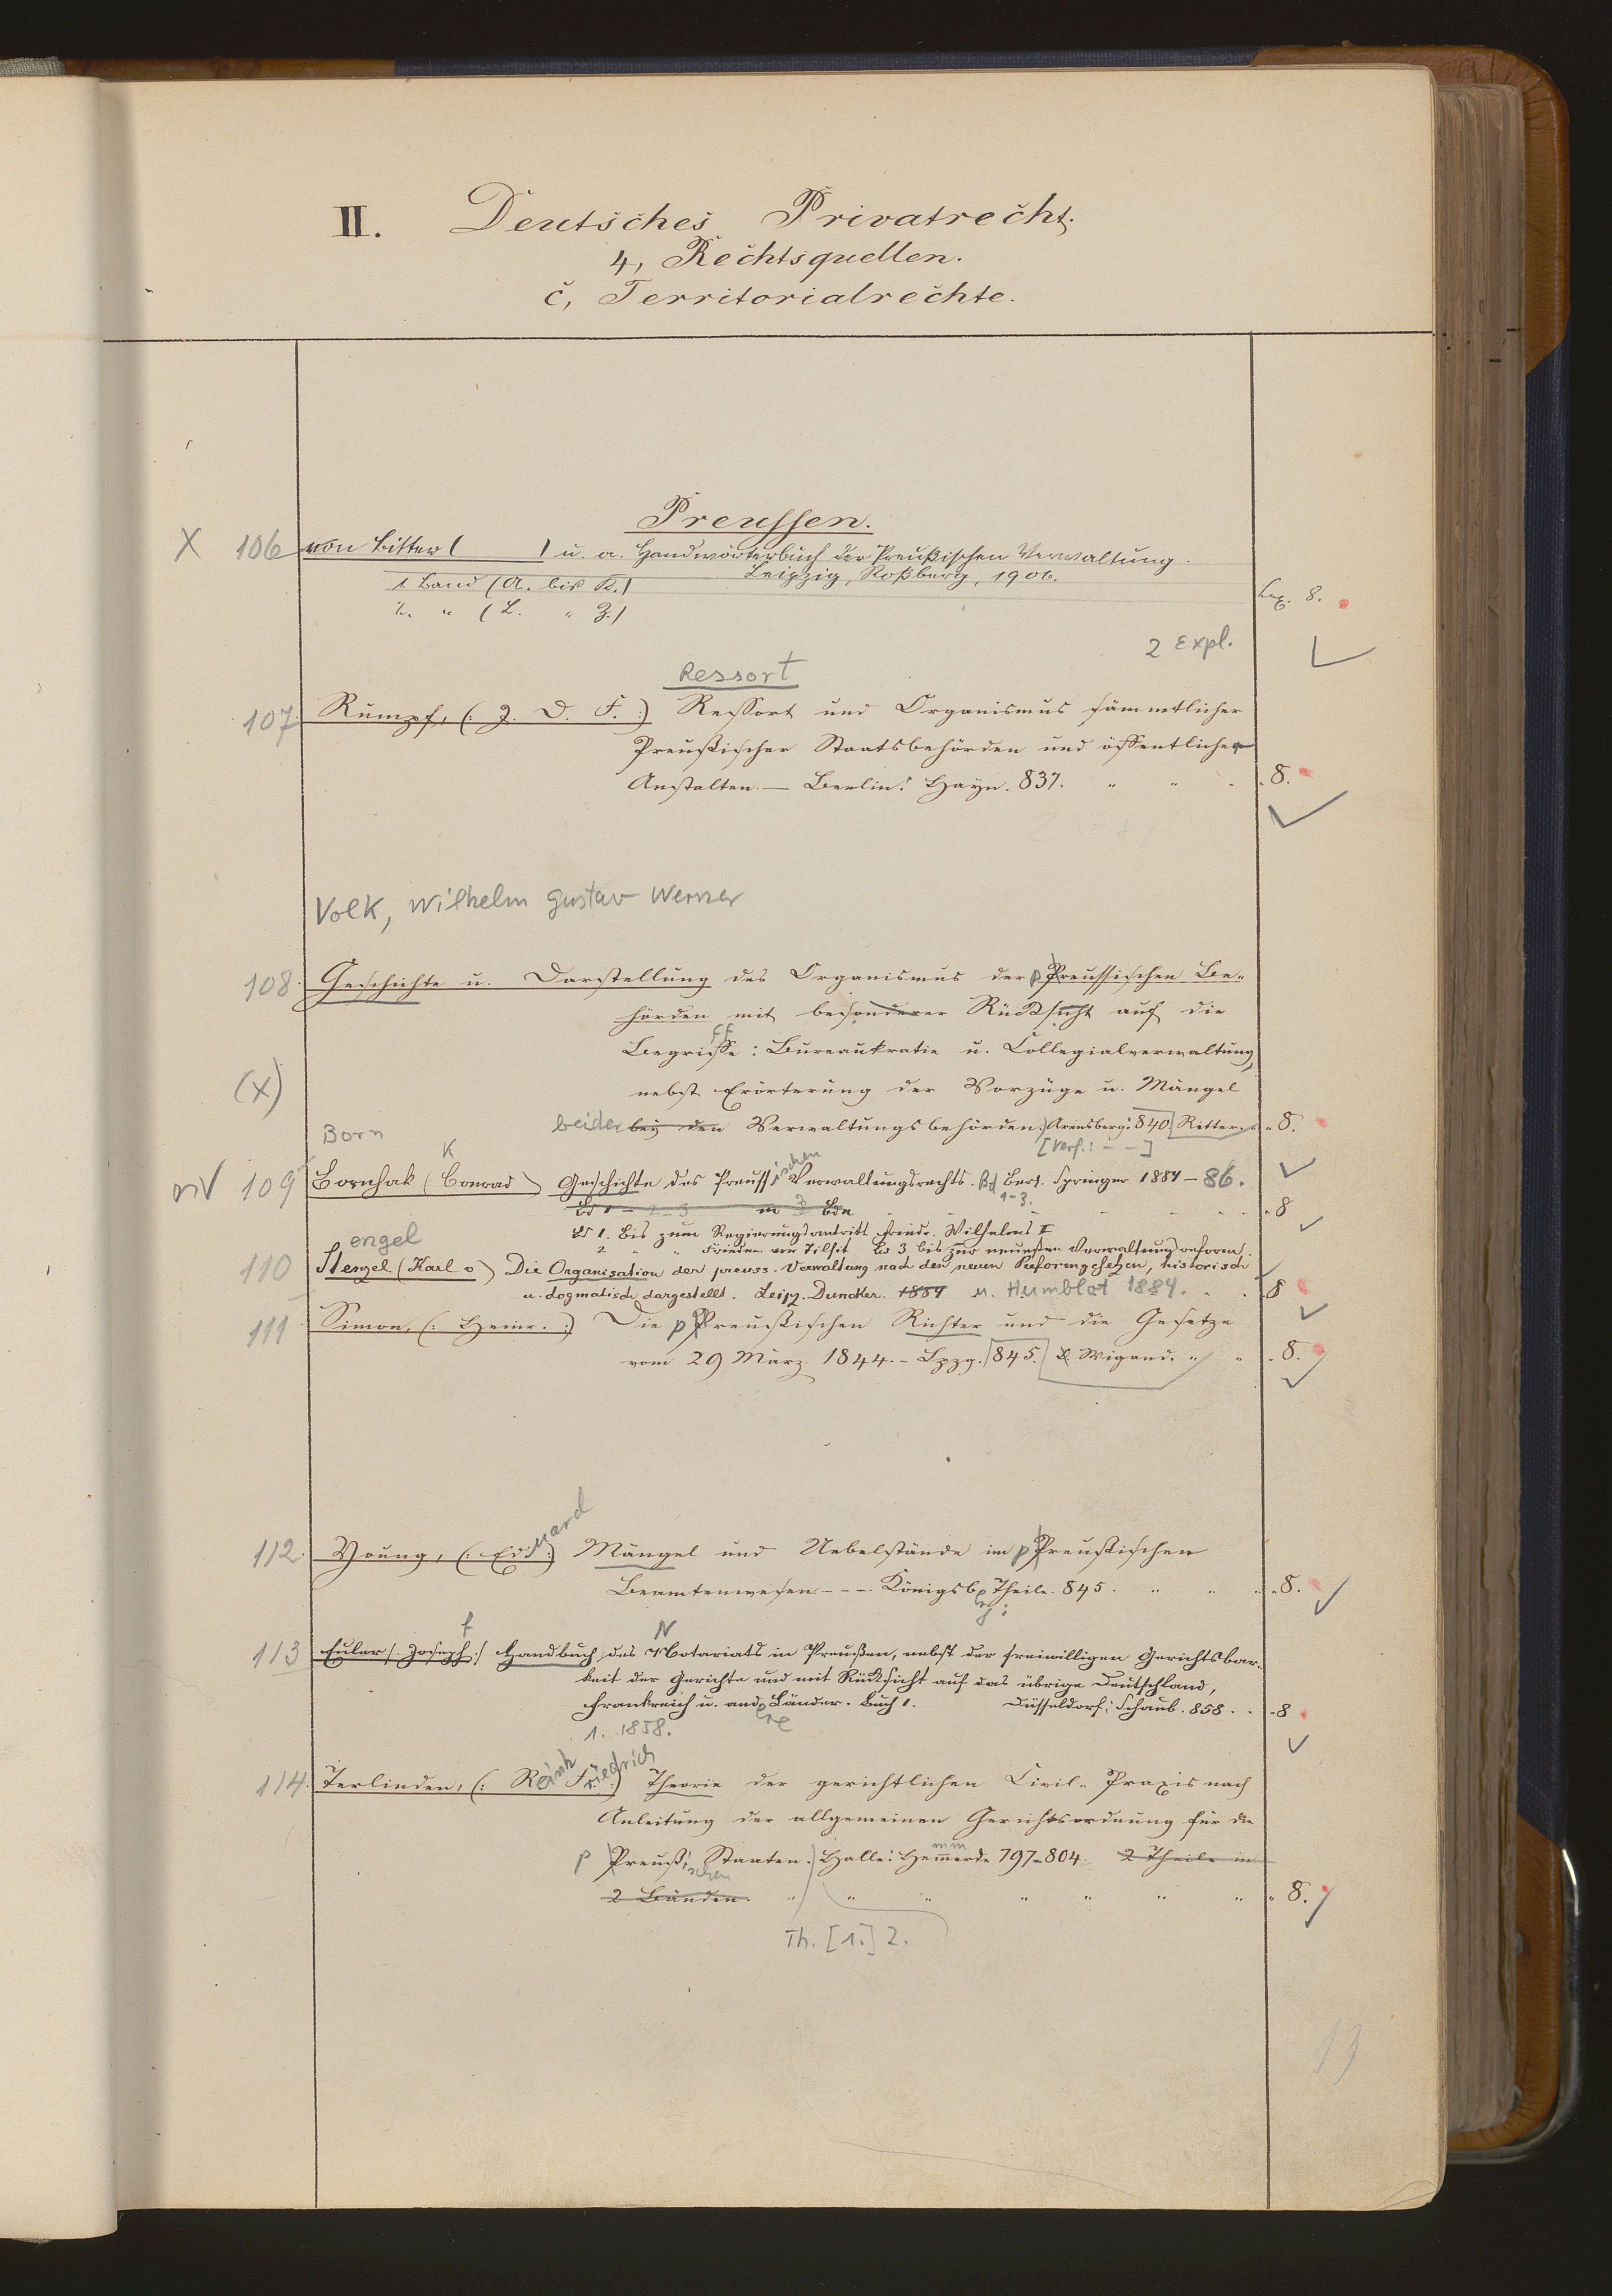 II. Deutsches Privatrecht.
4, Rechtsquellen.
c, Territorialrechte.
Preussen.
X 106 von Bitter ( ) u. a. Handwörterbuch der Preußischen Verwaltung.
Leipzig, Roßberg, 1906.
1. Band (A. bis K.)
2. " (L. " Z.) Lex. 8.
2 Expl.
Ressort
107. Rumpf, (: J. D. F. :) Ressort und Organismus sämmtlicher
Preußischer Staatsbehörden und öffentlicher
Anstalten. — Berlin: Hayn. 837. " " " 8.
Volk, Wilhelm Gustav Werner
108. Geschichte u. Darstellung des Organismus der pPreussischen Be-
hörden mit besonderer Rücksicht auf die
ff
Begriffe: Bureaukratie u. Collegialverwaltung,
(X) nebst Erörterung der Vorzüge u. Mängel
beider bey den Verwaltungsbehörden. Arensberg: 840 Ritter. " 8.
[Verf.: - - ]
Born K
109 Bornhak (Conrad) Geschichte des Preussischen Verwaltungsrechts. Bd 1-3. Berl. Springer 1884-86.
Bd 1 - 2-3 in 3 Bdn " 8
Bd 1. Bis zum Regierungsantritt Friedr. Wilhelms I
2 " " Frieden von Tilsit Bd 3 bis zur neuesten Verwaltungsreform.
engel
110 Stengel (Karl v) Die Organisation der preuss. Verwaltung nach den neuen Reformgesetzen, historisch
u. dogmatisch dargestellt. Leipz. Duncker. 1884 u. Humblot 1884. . . 8
111 Simon, (: Heinr. :) Die pPreußischen Richter und die Gesetze
vom 29 März 1844. - Lpzg. 845. Wigand. " " " 8.
112. Young, (: Eduard :) Mängel und Uebelstände im pPreußischen
Beamtenwesen. - - - Königsbg: Theile. 845. " " " 8.
f N
113 Euler (: Joseph :) Handbuch des Notariats in Preußen, nebst der freiwilligen Gerichtsbar-
keit der Gerichte und mit Rücksicht auf das übrige Deutschland,
Frankreich u. andere Länder. Buch 1. Düsseldorf: Schaub. 858. . . 8
1. 1858.
114. Terlinden, (: Reinh Friedrich :) Theorie der gerichtlichen Civil-Praxis nach
Anleitung der allgemeinen Gerichtsordnung für die
p Preußischen Staaten. Halle: Hemmerde 797-804. 2 Theile in
2 Bänden. " " " " " " " " 8.
Th. [1.] 2.
13